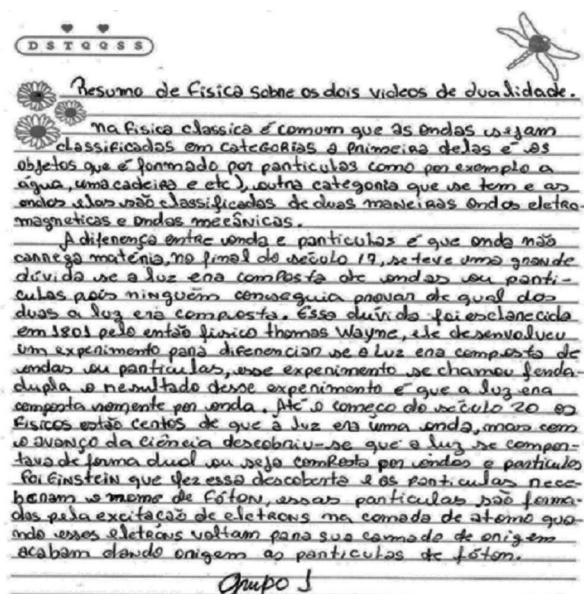 D S T Q Q S S
Resumo de Fisica sobre os dois videos de dualidade.
na Fisica classica é comum que as ondas sejam
classificadas em categorias a primeira delas é as
objetos que é formado por particulas como por exemplo a
água, uma cadeira e etc), outra categoria que se tem e as
ondas elas são classificadas de duas maneiras ondas eletro-
magneticas e ondas mecânicas.
A diferença entre onda e particulas é que onda não
carrega matéria, no final do século 17, se teve uma grande
dúvida se a luz era composta de ondas ou parti-
culas pois ninguém conseguia provar de qual dos
duas a luz era composta. Essa duvida foi esclarecida
em 1801 pelo então fisico thomas Wayne, ele desenvolveu
um experimento para diferenciar se a Luz era composta de
ondas ou particulas, esse experimento se chamou fenda-
dupla o resultado desse experimento é que a luz era
composta somente por onda. Até o começo do século 20 os
Fisicos estão certos de que à luz era uma onda, mais com
o avanço da ciência descobriu-se que a luz se compor-
tava de forma dual ou seja composta por ondas e particulas
Foi EinStein que fez essa descoberta e as particulas rece-
beram o nome de Fóton, essas particulas são forma-
das pela excitação de eletrons na camada de atomo qua-
ndo esses eletrons voltam para sua camada de origem
acabam dando origem as particulas de fóton.
Grupo 1